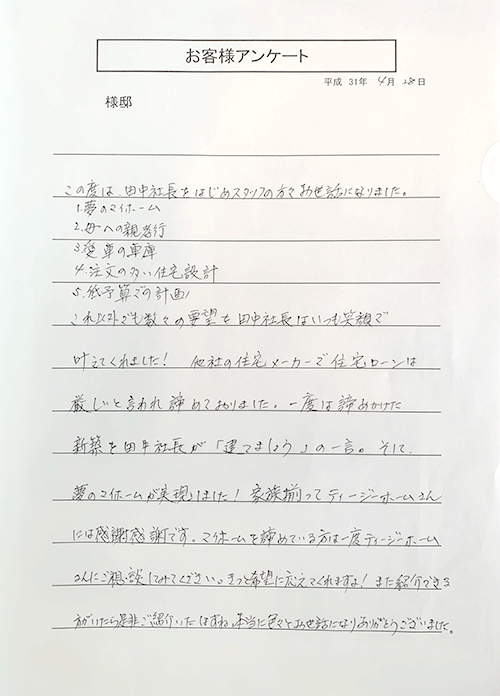 お客様アンケート
平成 31年 4月 28日
様邸
この度は、田中社長をはじめスタッフの方々お世話になりました。
1.夢のマイホーム
2.母への親孝行
3.愛車の車庫
4.注文の多い住宅設計
5.低予算での計画
これ以外でも数々の要望を田中社長はいつも笑顔で
叶えてくれました! 他社の住宅メーカーで住宅ローンは
厳しいと言われ諦めておりました。一度は諦めかけた
新築を田中社長が「建てましょう」の一言。そして、
夢のマイホームが実現しました! 家族揃ってティージーホームさん
には感謝感謝です。マイホームを諦めている方は一度ティージーホーム
さんにご相談してみてください。きっと希望に応えてくれますよ! また紹介できる
方がいたら是非ご紹介いたしますね。本当に色々とお世話になりありがとうございました。